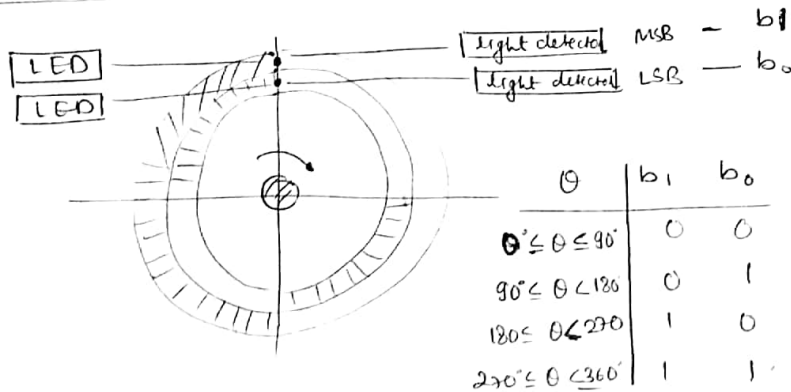 LED
LED
light detector MSB – b1
light detector LSB — b0
θ b1 b0
0° ≤ θ ≤ 90° 0 0
90° ≤ θ < 180° 0 1
180 ≤ θ < 270 1 0
270° ≤ θ < 360° 1 1